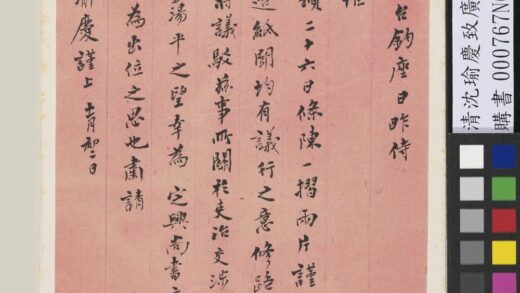 台鈞座日昨侍
二十六日條陳一摺兩片謹
聞均有議行之意修路
議駁茲事所關於吏治交涉
蕩平之望幸為定興尚書
為出位之思也肅請
瑜慶謹上 十一月初二日
清沈瑜慶致廣
購書 000767N